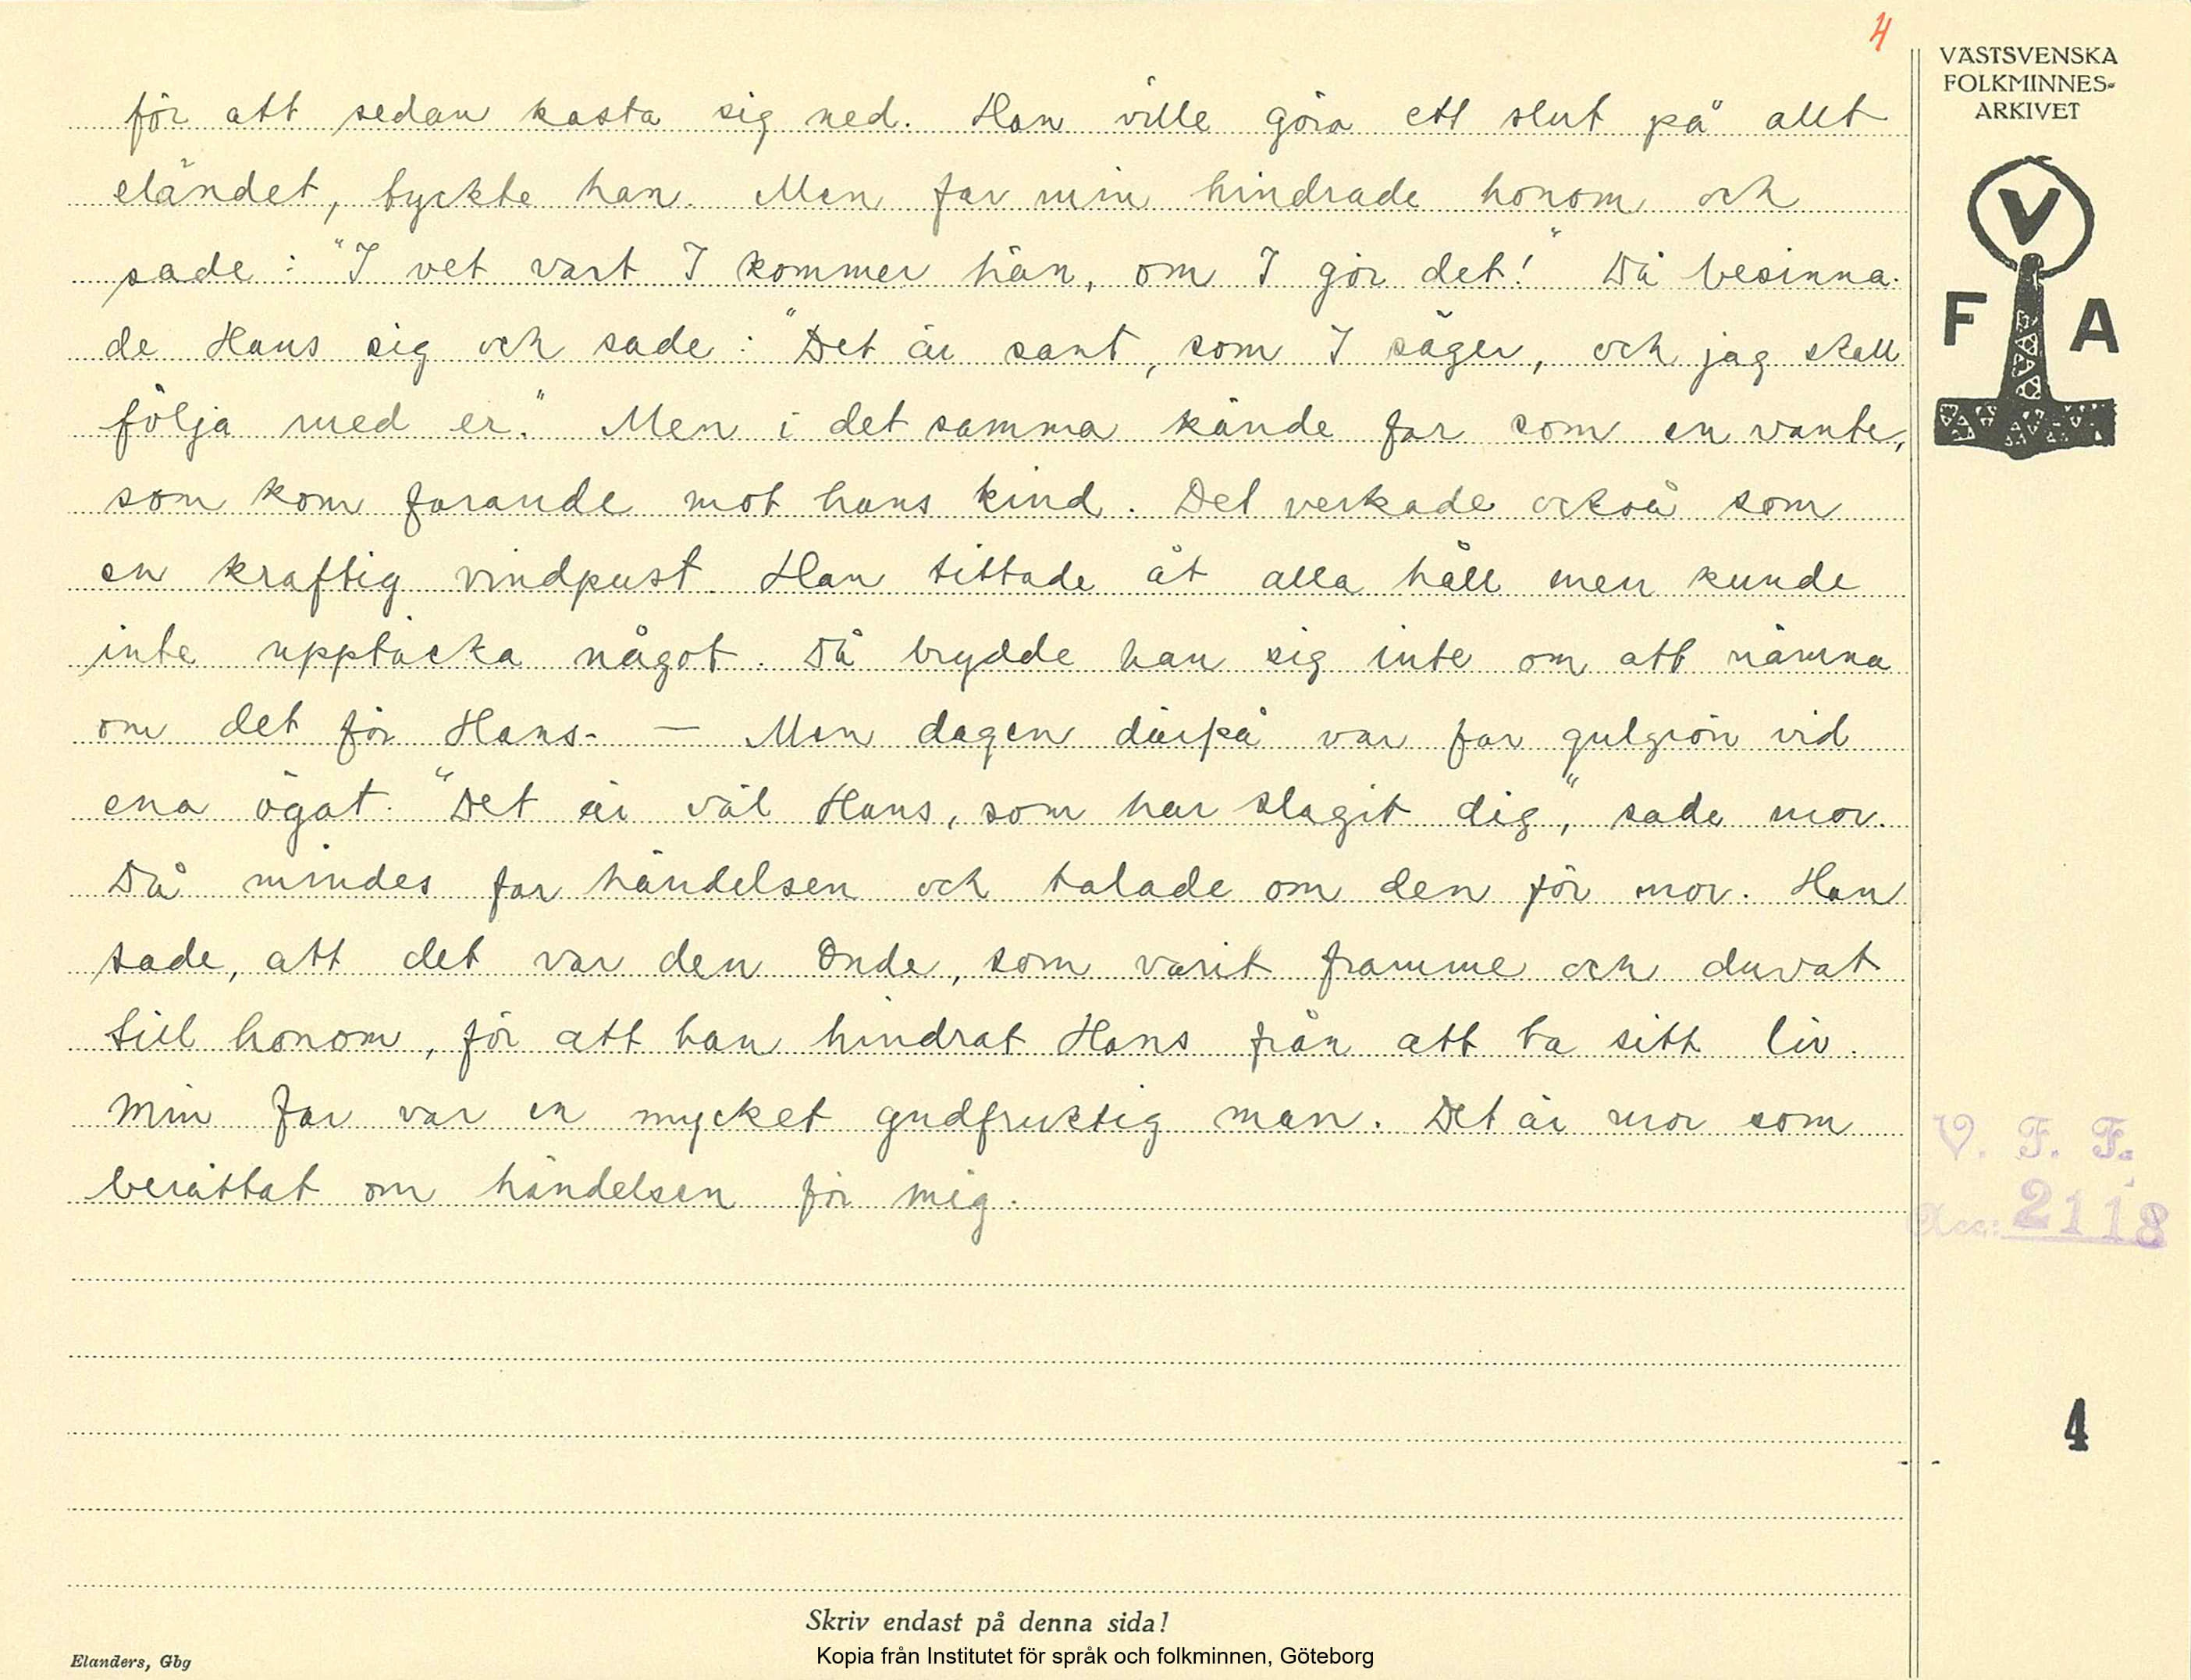 4
VÄSTSVENSKA
FOLKMINNES-
ARKIVET
V
F A
för att sedan kasta sig ned. Han ville göra ett slut på allt
eländet, tyckte han. Men far min hindrade honom och
sade: "I vet vart I kommer hän, om I gör det!" Då besinna-
de Hans sig och sade: "Det är sant, som I säger, och jag skall
följa med er." Men i det samma kände far som en vante,
som kom farande mot hans kind. Det verkade också som
en kraftig vindpust. Han tittade åt alla håll men kunde
inte upptäcka något. Då brydde han sig inte om att nämna
om det för Hans. — Men dagen därpå var far gulgrön vid
ena ögat. "Det är väl Hans, som har slagit dig", sade mor.
Då mindes far händelsen och talade om den för mor. Han
sade, att det var den Onde, som varit framme och duvat
till honom, för att han hindrat Hans från att ta sitt liv.
Min far var en mycket gudfruktig man. Det är mor som
berättat om händelsen för mig.
V. F. F.
Acc: 2118
4
Skriv endast på denna sida!
Kopia från Institutet för språk och folkminnen, Göteborg
Elanders, Gbg